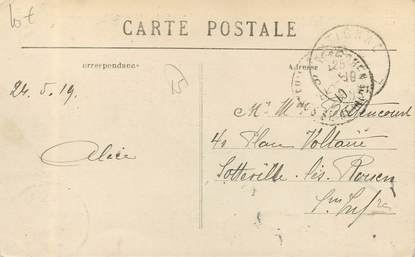 lot
CARTE POSTALE
Correspondance
Adresse
24.5.19.
Alice
Mr Mme
40 Place Voltaire
Sotteville-lès-Rouen
Sne Infre